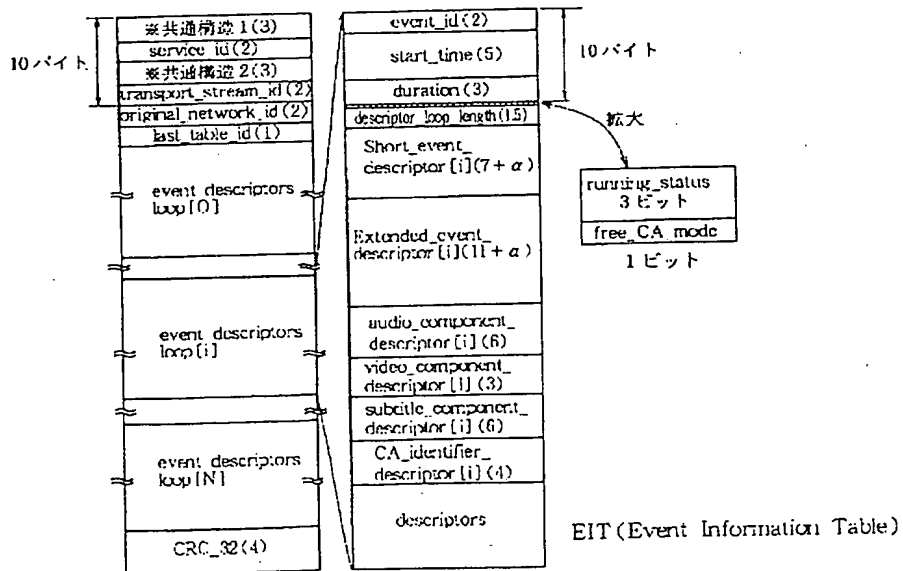 10バイト
※共通構造1(3)
service_id(2)
※共通構造2(3)
transport_stream_id(2)
original_network_id(2)
last_table_id(1)
event descriptors
loop[0]
event descriptors
loop[i]
event descriptors
loop[N]
CRC_32(4)
event_id(2)
start_time(5)
duration(3)
descriptor_loop_length(1.5)
Short_event_
descriptor[i](7+α)
Extended_event_
descriptor[i](11+α)
audio_component_
descriptor[i](6)
video_component_
descriptor[i](3)
subtitle_component_
descriptor[i](6)
CA_identifier_
descriptor[i](4)
descriptors
10バイト
拡大
running_status
3ビット
free_CA_mode
1ビット
EIT(Event Information Table)